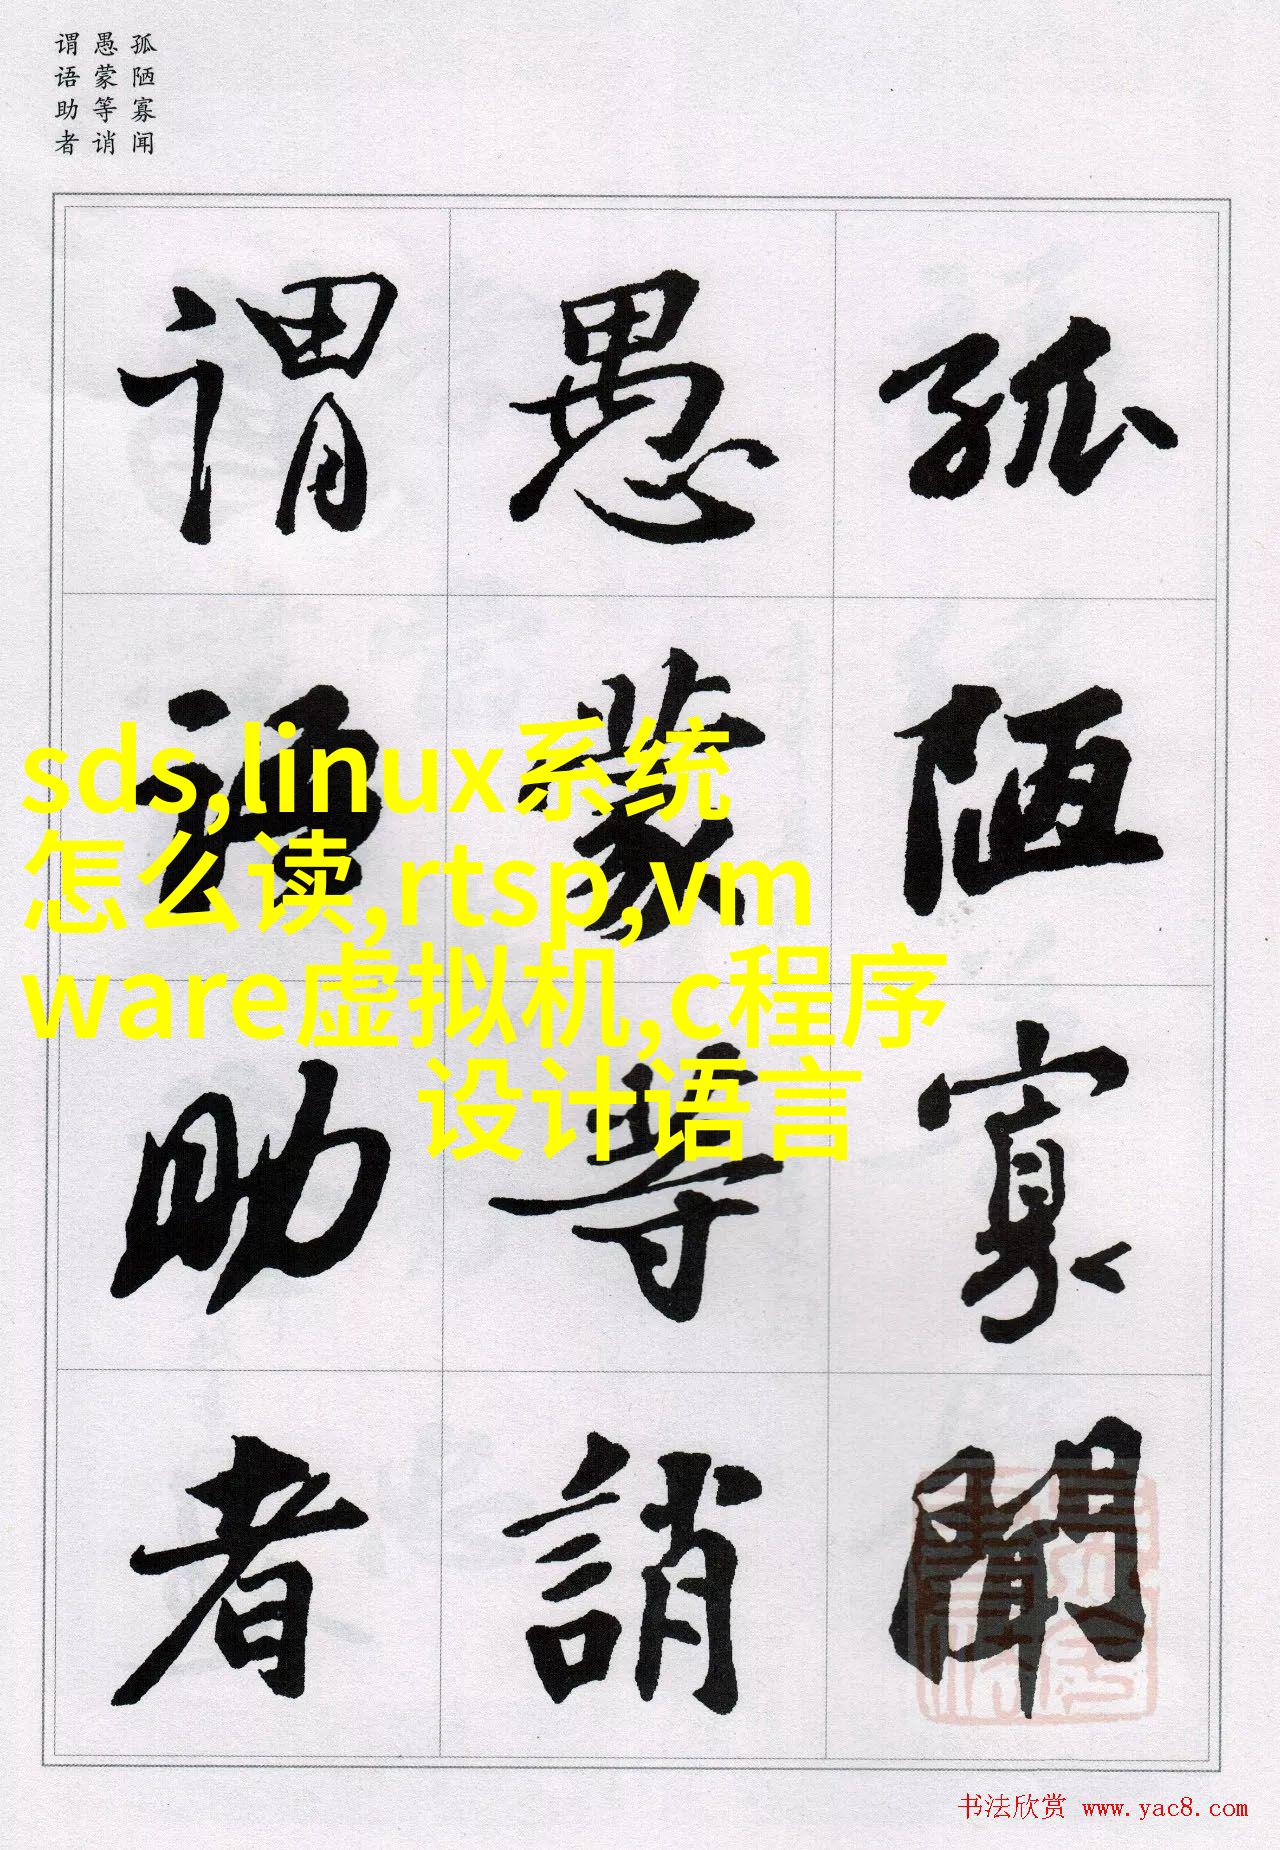 孤陋寡闻
愚蒙等诮
谓语助者
孤陋寡聞
愚蒙等誚
谓语助者
sds,linux系统
怎么读,rtsp,vm
ware虚拟机,c程序
设计语言
书法欣赏 www.yac8.com